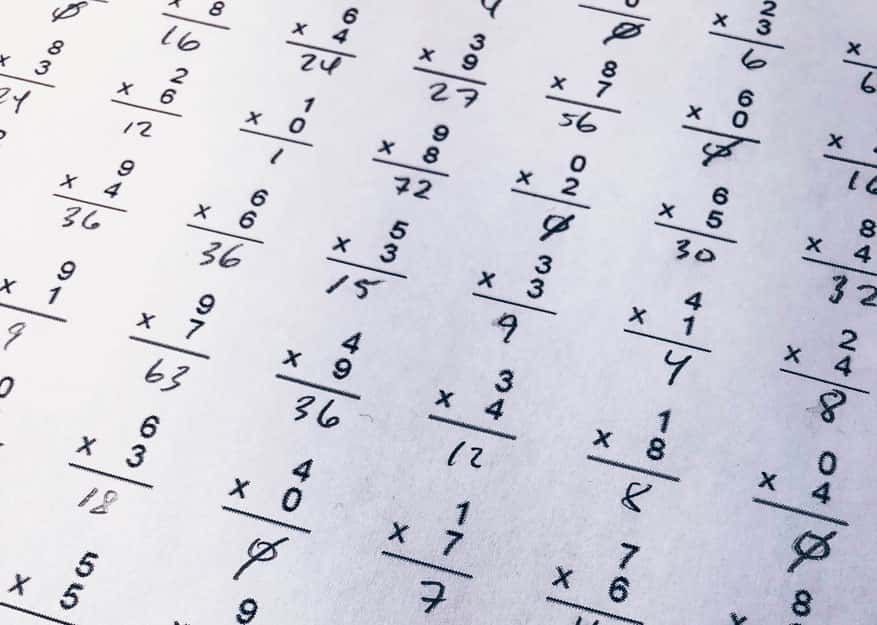 2
0 × 3 ×
4 0 6 6
8 6 3 8 6
× 8 × 4 × 9 × 7 × 0 ×
0 16 24 27 56 0 16
8 2 1 9 0 6 8
× 3 × 6 × 0 × 8 × 2 × 5 × 4
24 12 1 72 0 30 32
9 6 5 3 4 2
× 4 × 6 × 3 × 3 × 1 × 4
36 36 15 9 4 8
9 9 4 3 1 0
× 1 × 7 × 9 × 4 × 8 × 4
9 63 36 12 8 0
0 6 4 1 7 8
× 3 × 0 × 7 × 6
18 0 7
5 9
× 5